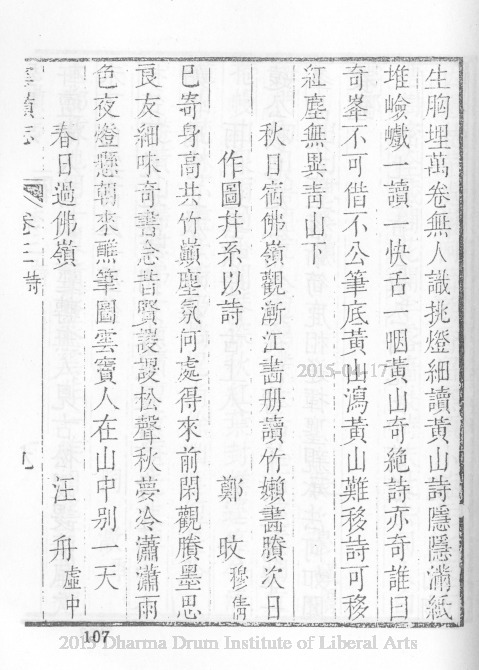 生胸埋萬卷無人識挑燈細讀黃山詩隱隱滿紙
堆嶮巇一讀一快舌一咽黃山奇絕詩亦奇誰曰
奇峯不可借不公筆底黃山瀉黃山難移詩可移
紅塵無異青山下
秋日宿佛嶺觀漸江畫册讀竹嬾畫賸次日
作圖幷系以詩 鄭 旼 穆倩
已寄身高共竹巔塵氛何處得來前閑觀賸墨思
良友細味奇書念昔賢謖謖松聲秋夢冷瀟瀟雨
色夜燈懸朝來醮筆圖雲竇人在山中別一天
春日過佛嶺 汪 舟 虛中
嶺志 卷三 詩 九
2015-04-17
107
2015 Dharma Drum Institute of Liberal Arts